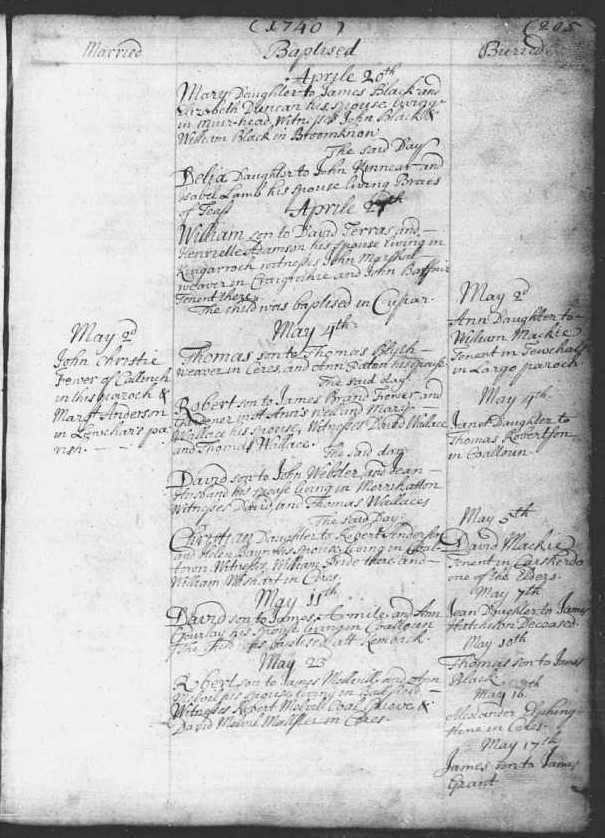 (1740)
(205
Married
Baptised
Buried
Aprile 20th
Mary Daughter to James Black and
Elizabeth Duncan his spouse living
in Muir-head, Witnesses John Black &
William Black in Broomknow
The said Day
Delia Daughter to John Kinnear and
Isabel Lamb his spouse living Braes
of Teass
Aprile
William son to David Terras and
Adamson his spouse living in
Kingarroch witnesses John Marshal
weaver in Craigrothie and John Balfour
Tenent there
The child was baptised in Cupar.
May 4th
Thomas son to Thomas Blyth
weaver in Ceres and Ann Paton his spouse
The said day
Robert son to James Brand Fewer and
Gardener in St Ann's well and Mary
Wallace his spouse, Witnesses David Wallace
and Thomas Wallace.
The said day
David son to John Webster and Jean
Husband his spouse living in
Witnesses David and Thomas Wallaces
The said Day
Christian Daughter to Robert Anderson
and Helen his spouse living in Coal-
town Witnesses William there and
William Wishart in Ceres.
May 11th
David son to James and Ann
Gourlay his spouse living in Coaltoun
The Child was baptised att Kemback.
May 23
Robert son to James Melvill and Ann
Melvil his spouse living in
Witnesses Robert Melvil Coal Grieve &
David Melvil in Ceres.
May 2d
John Christie
Fewer of
in this paroch &
Margt Anderson
in Leuchar's pa
rish.
May 2d
Ann Daughter to
William Mackie
Tenent in
in Largo paroch
May 4th
Janet Daughter to
Thomas Robertson
in Coaltoun.
May 5th
David Mackie
Tenent in Carskerdo
one of the Elders.
May 7th
Jean Daughter to James
Hutchison Deceased.
May 10th
Thomas son to James
Black
May 16
Alexander Elphing
stone in Ceres.
May 17th
James son to James
Grant